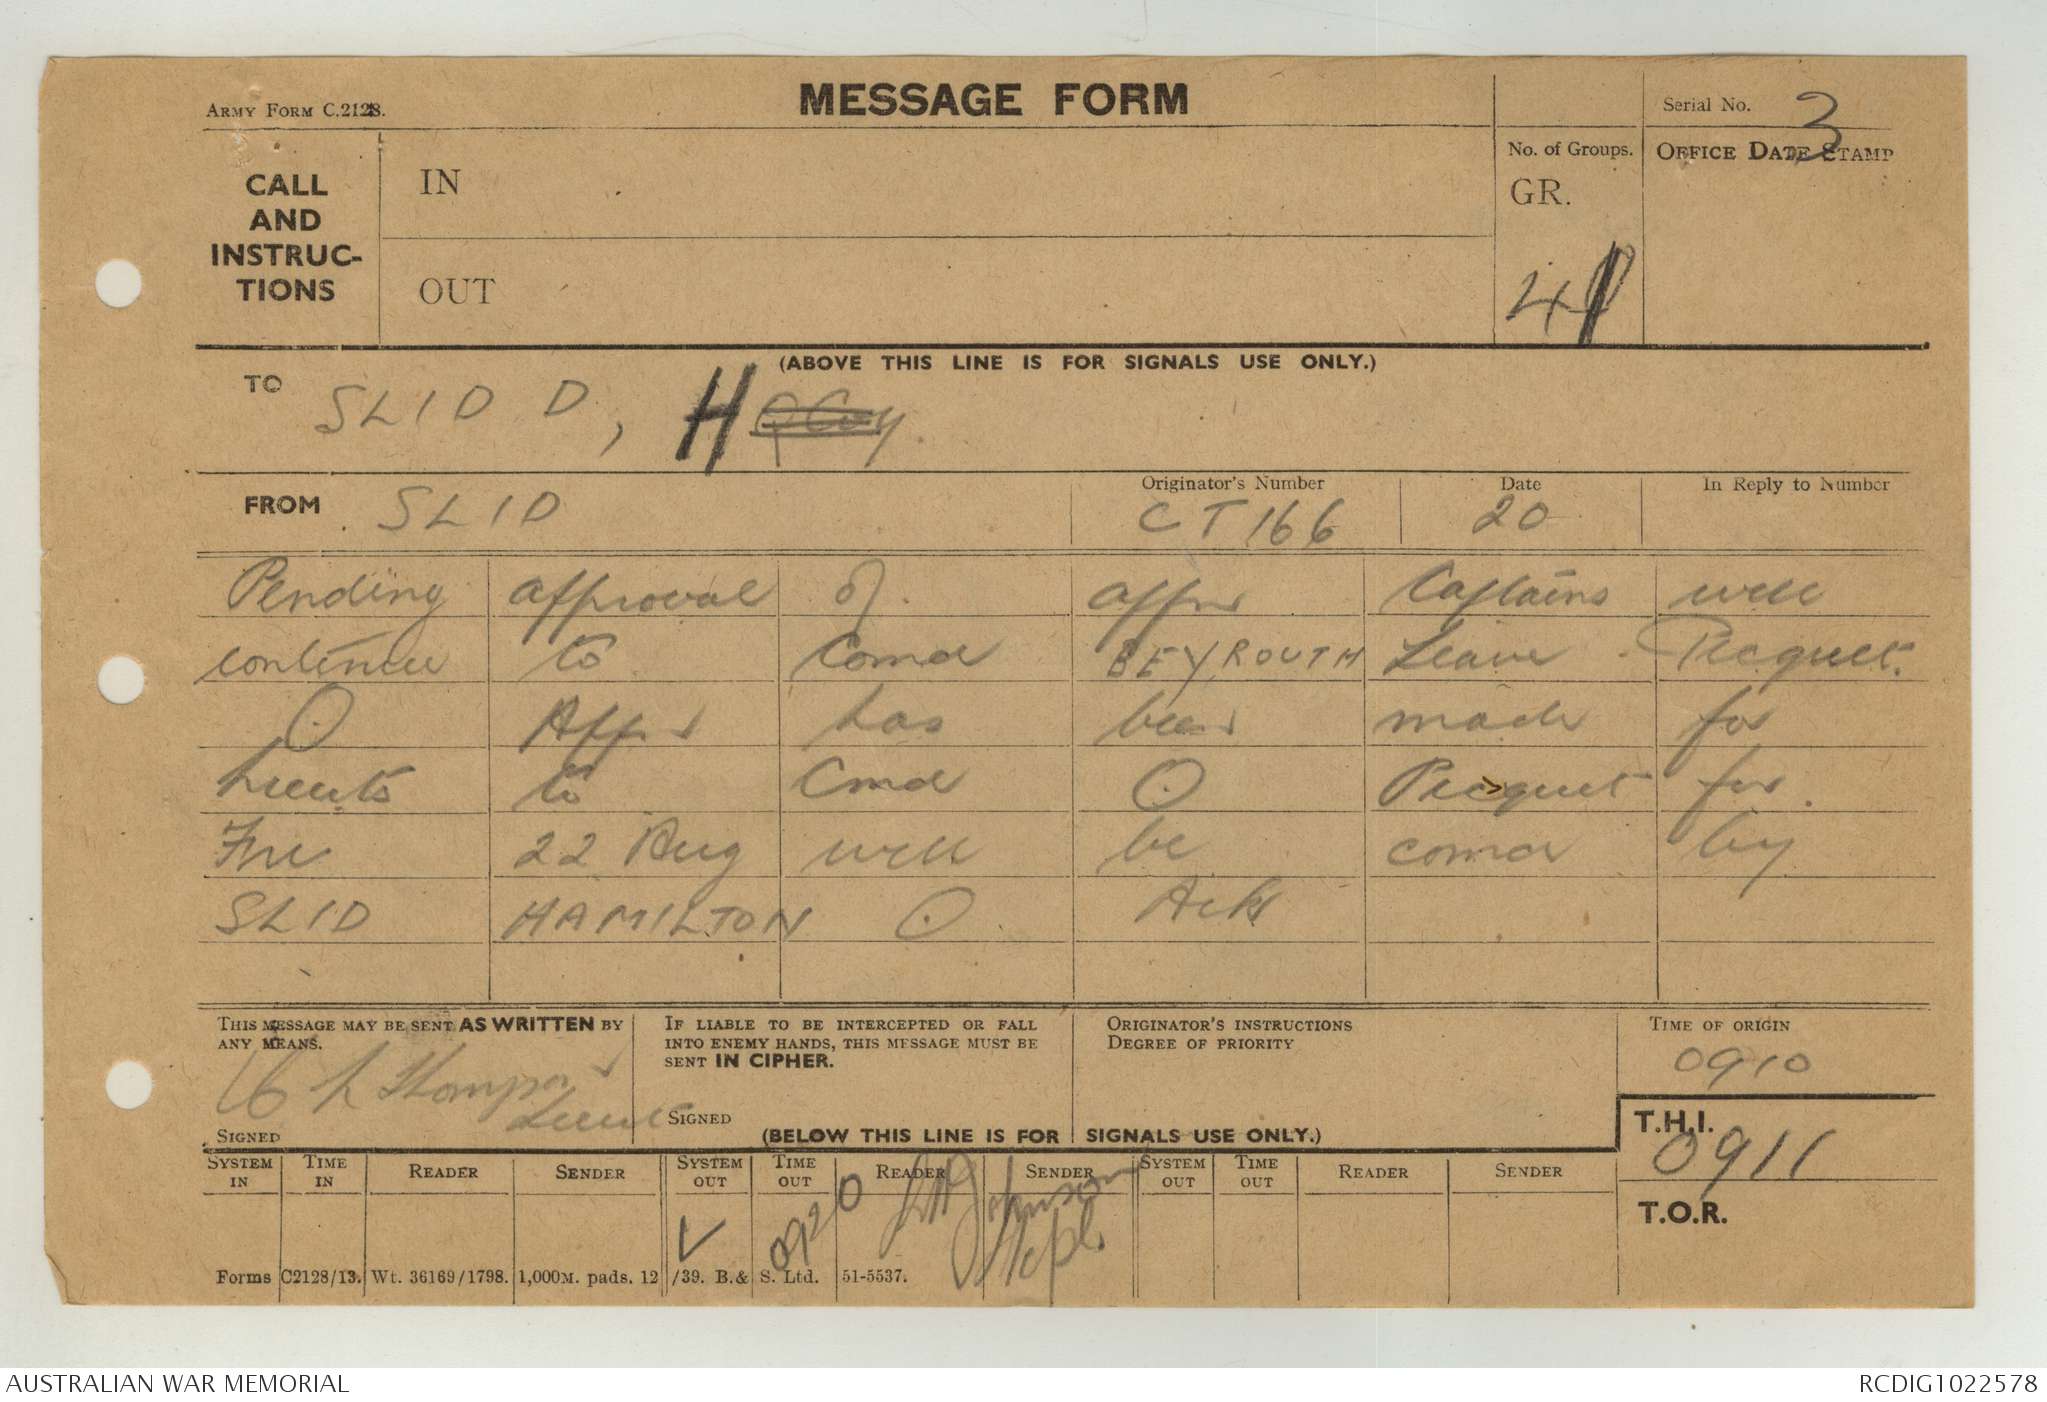 ARMY FORM C.2128.
MESSAGE FORM
Serial No. 3
CALL AND INSTRUC-TIONS
IN
OUT
No. of Groups.
GR.
OFFICE DATE STAMP
(ABOVE THIS LINE IS FOR SIGNALS USE ONLY.)
TO SLID D, H
FROM SLID
Originator's Number CT166
Date 20
In Reply to Number
Pending approval of appns Captains will
continue to comd BEYROUTH Leave Picquet.
O Appn has been made for
Lieuts to Cmd O Picquet for
Fri 22 Aug will be comd by
SLID HAMILTON O Ack
THIS MESSAGE MAY BE SENT AS WRITTEN BY ANY MEANS.
Thompson
Lieut
SIGNED
IF LIABLE TO BE INTERCEPTED OR FALL INTO ENEMY HANDS, THIS MESSAGE MUST BE SENT IN CIPHER.
SIGNED
ORIGINATOR'S INSTRUCTIONS
DEGREE OF PRIORITY
TIME OF ORIGIN
0910
(BELOW THIS LINE IS FOR SIGNALS USE ONLY.)
T.H.I.
0911
T.O.R.
SYSTEM IN TIME IN READER SENDER SYSTEM OUT TIME OUT READER SENDER SYSTEM OUT TIME OUT READER SENDER
0920 Johnson
Forms C2128/13. Wt. 36169/1798. 1,000M. pads. 12/39. B.& S. Ltd. 51-5537.
AUSTRALIAN WAR MEMORIAL
RCDIG1022578